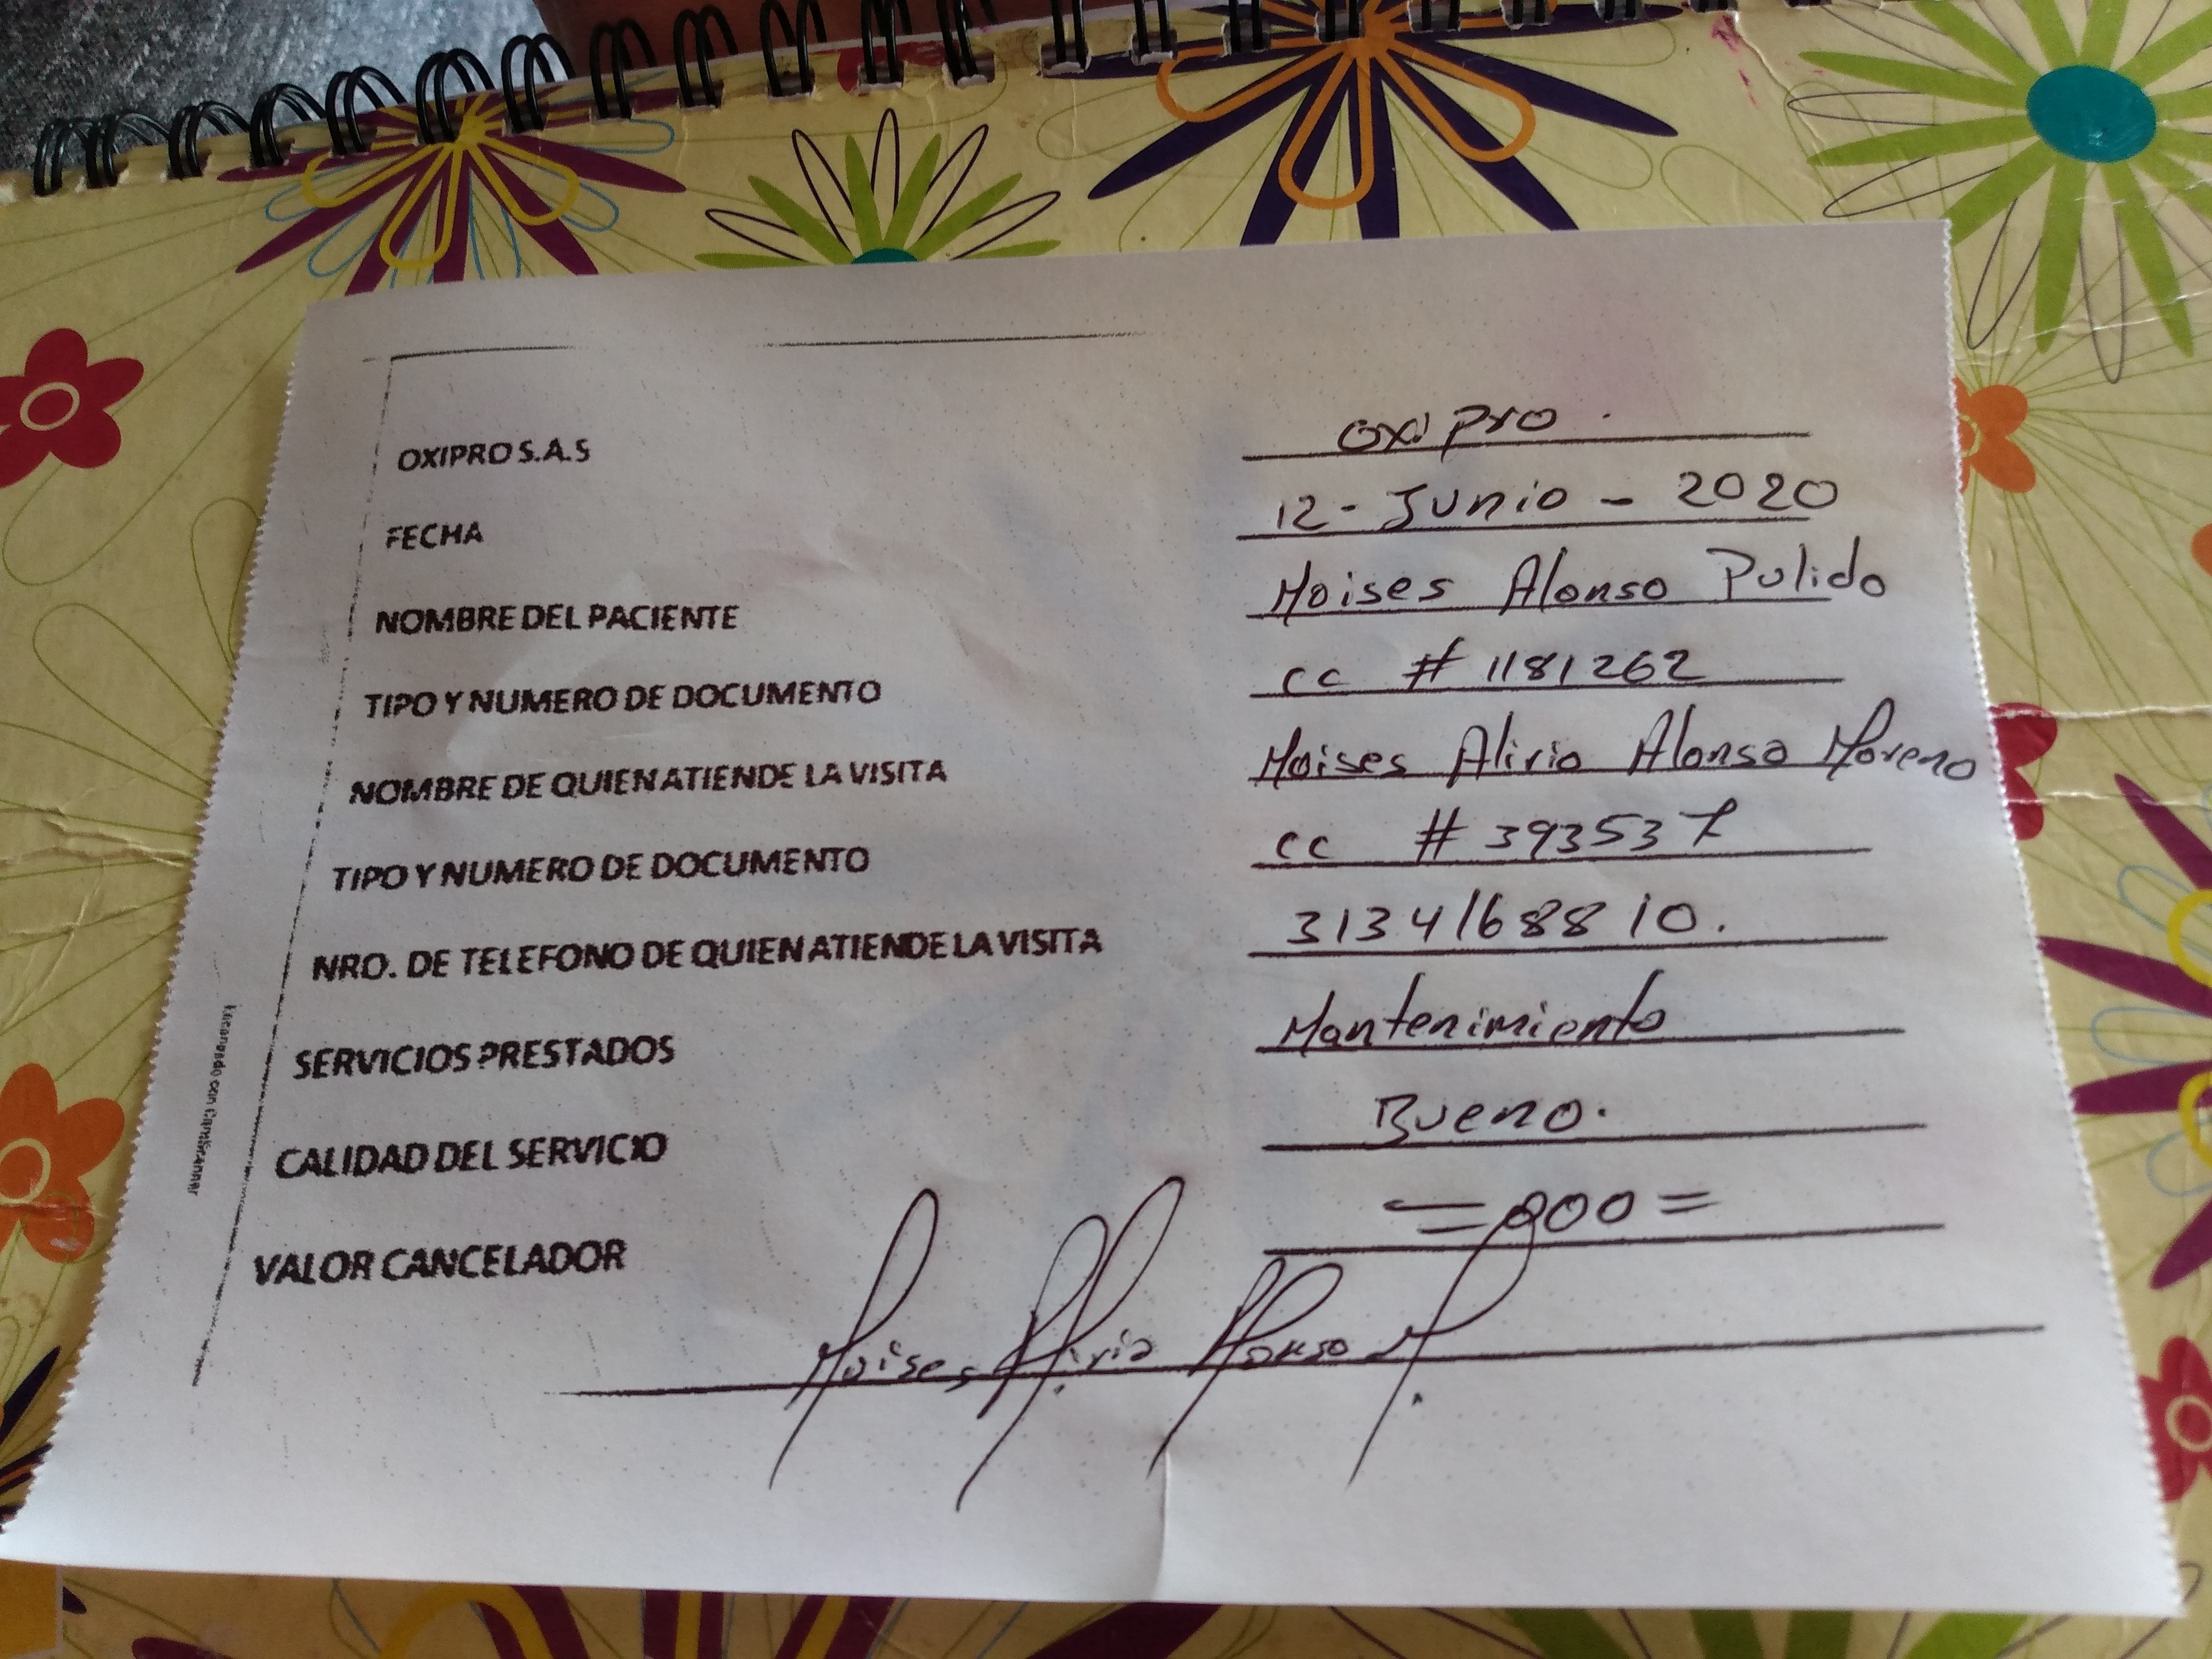 OXIPRO S.A.S oxipro.
FECHA 12- Junio - 2020
NOMBRE DEL PACIENTE Moises Alonso Pulido
TIPO Y NUMERO DE DOCUMENTO cc # 1181262
NOMBRE DE QUIEN ATIENDE LA VISITA Moises Alirio Alonso Moreno
TIPO Y NUMERO DE DOCUMENTO cc # 393537
NRO. DE TELEFONO DE QUIEN ATIENDE LA VISITA 3134168810.
SERVICIOS PRESTADOS Mantenimiento
CALIDAD DEL SERVICIO Bueno.
VALOR CANCELADOR =000=
Moises Alirio Alonso M.
Escaneado con CamScanner